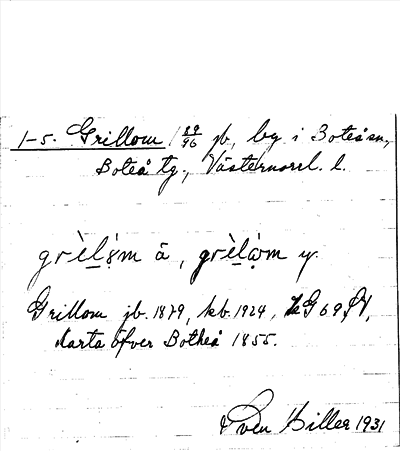 1-5. Grillom 1 89/96 jb, by i Boteå sn,
Boteå tg., Västernorrl. l.
grèlǫ́m ä, grèlǫ́m y.
Grillom jb. 1879, kb. 1924, G 69
Karta öfver Botheå 1855.
Sven Hiller 1931